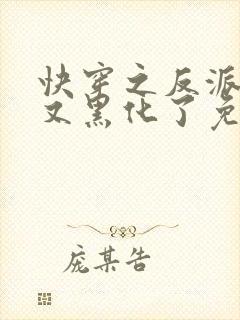 快穿之反派
又黑化了免
庞某告